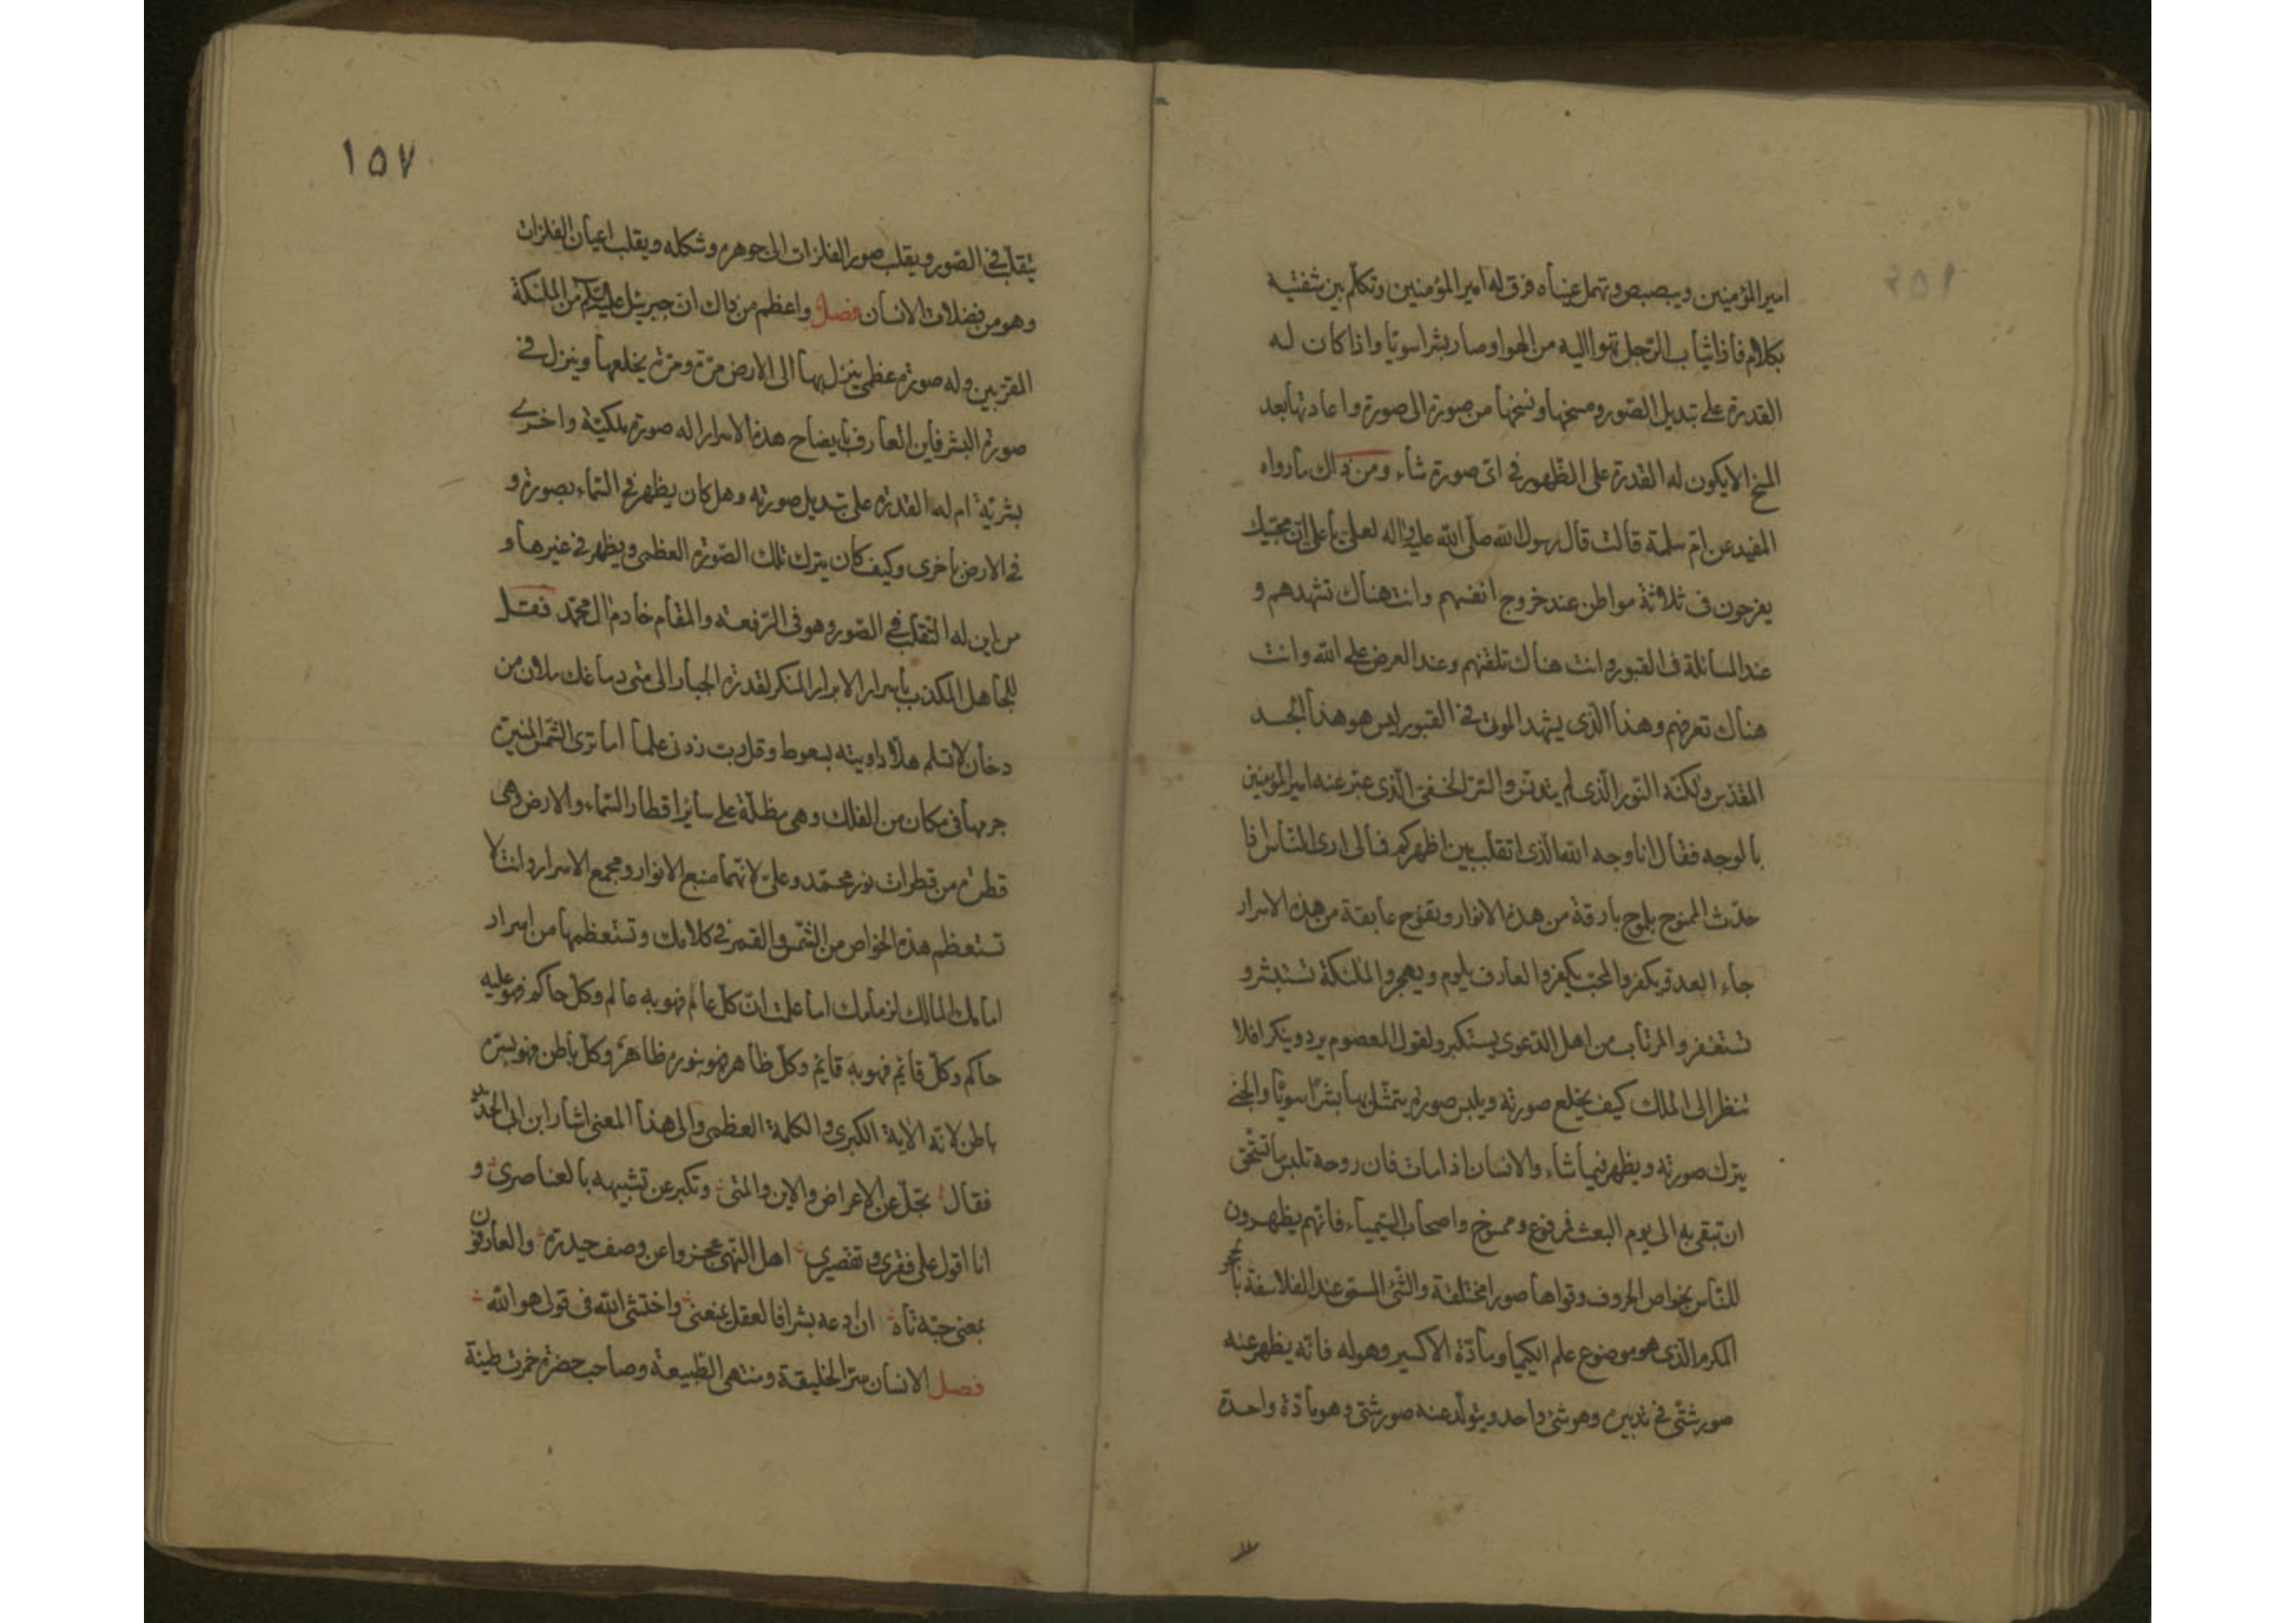 امير المؤمنين ويبصبص وتهمل عيناه فرق له امير المؤمنين وتكلم بين شفتيه
بكلام فاذا ثياب الرجل تهوا اليه من الهوا وصار بشرا سويا واذا كان له
القدرة على تبديل الصور ومسخها ونسخها من صورة الى صورة واعادتها بعد
المسخ الا يكون له القدرة على الظهور في اى صورة شاء ومن ذلك ما رواه
المفيد عن ام سلمة قالت قال رسول الله صلى الله عليه واله لعلى يا على ان محبيك
يفرحون فى ثلاثة مواطن عند خروج انفسهم وانت هناك تشهدهم و
عند المسائلة فى القبور وانت هناك تلقنهم وعند العرض على الله وانت
هناك تعرفهم وهذا الذى يشهد الموتى في القبور ليس هو هذا الجسد
المقدس ولكنه النور الذى لم يتدنس والسر الخفى الذى عبر عنه امير المؤمنين
بالوجه فقال انا وجه الله الذى اتقلب بين اظهركم فمالى ارى الناس اذا
حدث الممنوح بلموح بارقة من هذه الانوار وبفوح عابقة من هذه الاسرار
جاء العدو يكفر والمحب يكفر والعارف يلوم ويهجر والملئكة تستبشر و
تستغفر والمرتاب من اهل الدعوى يستكبر ولقول المعصوم يرد وينكر افلا
تنظر الى الملك كيف يخلع صورته ويلبس صورة يتمثل بها بشرا سويا والجنى
يترك صورته ويظهر فيما شاء والانسان اذا مات فان روحه تلبس ما تستحق
ان تبقى به الى يوم البعث فمرفوع وممسوخ واصحاب السيمياء فانهم يظهرون
للناس بخواص الحروف وقواها صورا مختلفة والشئ المسمى عند الفلاسفة بالحجر
المكرم الذى هو موضوع علم الكيميا ومادة الاكسير وهوله فانه يظهر عنه
صور شتى في تدبيره وهو شئ واحد ويتولد عنه صور شتى وهو مادة واحدة
١٥٧
يتقلب في الصور ويقلب صور الفلزات الى جوهره وشكله ويقلب اعيان الفلزات
وهو من فضلات الانسان فصل واعظم من ذاك ان جبرئيل عليه السلام من الملئكة
المقربين وله صورة عظمى ينزل بها الى الارض مرة ومرة يخلعها وينزل في
صورة البشر فاين العارف بايضاح هذه الاسرار اله صورة ملكية واخرى
بشرية ام له القدرة على تبديل صورته وهل كان يظهر في السماء بصورة و
في الارض باخرى وكيف كان يترك تلك الصورة العظمى ويظهر في غيرها و
من اين له التقلب في الصور وهو فى الرفعة والمقام خادم ال محمد فقل
للجاهل المكذب باسرار الابرار المنكر لقدرة الجبار الى متى دماغك ملان من
دخان لا تسلم هلا داويته بسعوط وقل رب زدنى علما اما ترى الشمس المنيرة
جرمها فى مكان من الفلك وهى مطلة على ساير اقطار السماء والارض وهى
قطرة من قطرات نور محمد وعلى لانهما منبع الانوار ومجمع الاسرار وانت لا
تستعظم هذه الخواص من الشمس والقمر في كلامك وتستعظمها من اسرار
امامك المالك لزمامك اما علمت ان كل عالم فهو به عالم وكل حاكم فهو عليه
حاكم وكل قائم فهو به قايم وكل ظاهر فهو بنوره ظاهر وكل باطن فهو بسره
باطن لانه الاية الكبرى والكلمة العظمى والى هذا المعنى اشار ابن ابى الحديد
فقال تجل عن الاعراض والاين والمتى وتكبر عن تشبيهه بالعناصرى و
انا اقول على فقرى وتقصيرى اهل النهى عجزوا عن وصف حيدرة والعارفون
بمعنى حبه تاه ان ادعه بشرا فالعقل يمنعنى واختشى الله فى قولى هو الله
فصل الانسان سر الخليقة ومنتهى الطبيعة وصاحب حضرة خمرت طينة